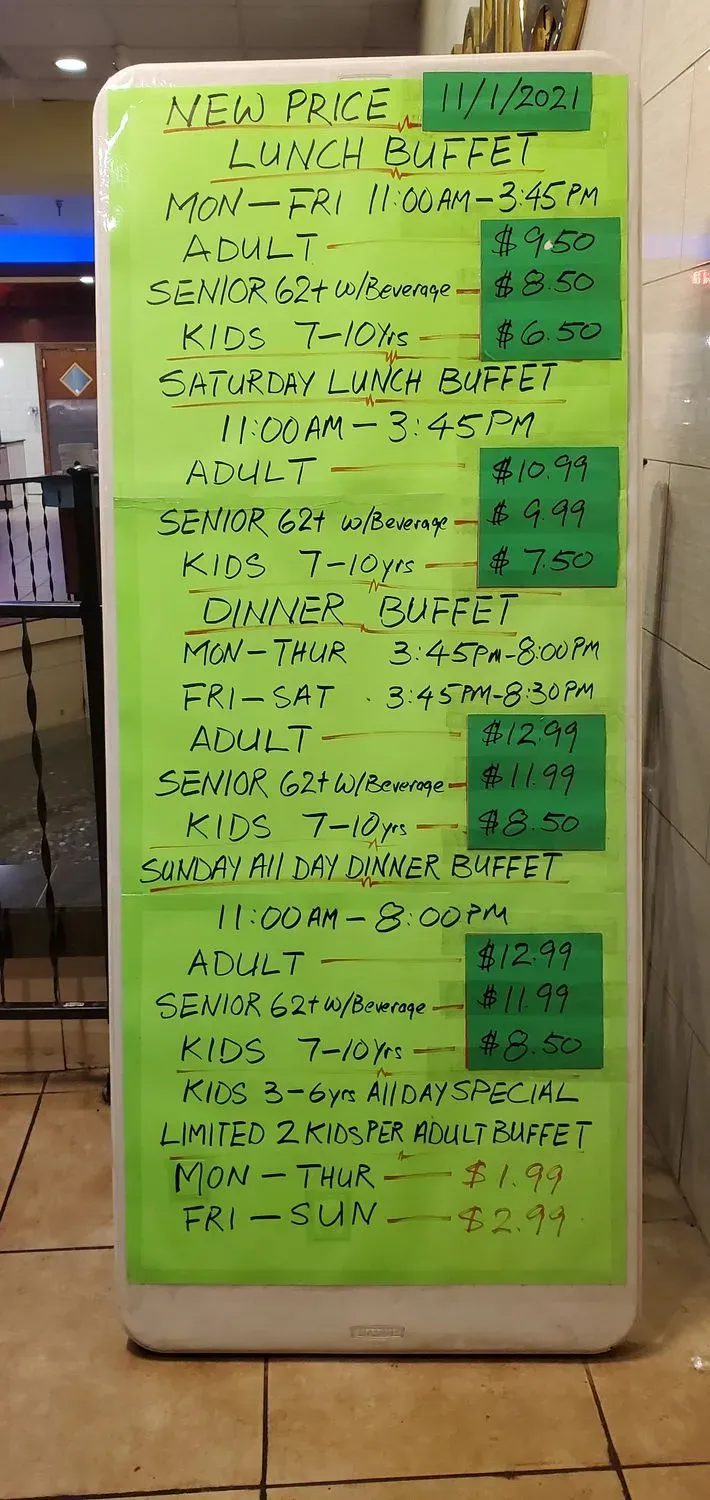 NEW PRICE 11/1/2021
LUNCH BUFFET
MON-FRI 11:00AM-3:45PM
ADULT $9.50
SENIOR 62+ w/Beverage $8.50
KIDS 7-10Yrs $6.50
SATURDAY LUNCH BUFFET
11:00AM-3:45PM
ADULT $10.99
SENIOR 62+ w/Beverage $9.99
KIDS 7-10yrs $7.50
DINNER BUFFET
MON-THUR 3:45PM-8:00PM
FRI-SAT 3:45PM-8:30PM
ADULT $12.99
SENIOR 62+ W/Beverage $11.99
KIDS 7-10yrs $8.50
SUNDAY All DAY DINNER BUFFET
11:00AM-8:00PM
ADULT $12.99
SENIOR 62+ W/Beverage $11.99
KIDS 7-10Yrs $8.50
KIDS 3-6yrs All DAY SPECIAL
LIMITED 2 KIDS PER ADULT BUFFET
MON-THUR $1.99
FRI-SUN $2.99